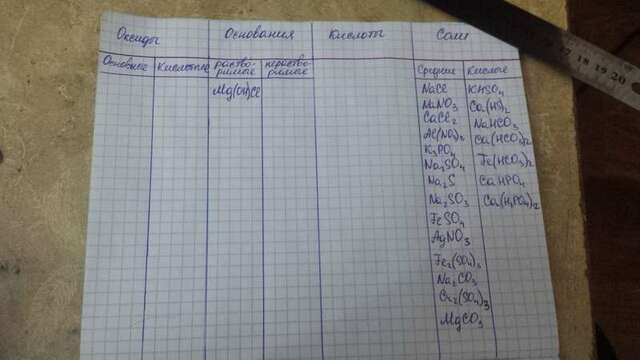 Оксиды Основания Кислоты Соли
Основные Кислотные раство- нераство- Средние Кислые
римые римые
Mg(OH)Cl NaCl KHSO4
NaNO3 Ca(HS)2
CaCl2 NaHCO3
Al(NO3)3 Ca(HCO3)2
K3PO4 Fe(HCO3)2
Na2SO4 CaHPO4
Na2S Ca(H2PO4)2
Na2SO3
FeSO4
AgNO3
Fe2(SO4)3
Na2CO3
Cr2(SO4)3
MgCO3
17 18 19 20